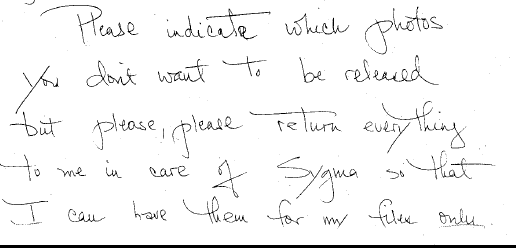 Please indicate which photos
you don't want to be released
but please, please return everything
to me in care of Sygma so that
I can have them for my files only.